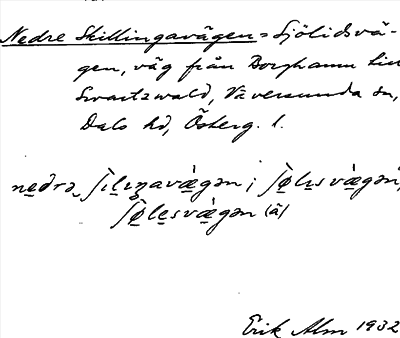 Nedre Skillingavägen = Sjölidsvä-
gen, väg från Borghamn till
Svartzwald, Väversunda sn,
Dals hd, Österg. l.
ne̲drə ʃɪl̲ɪŋavæ̲̀gən; ʃø̲̀lɪsvæ̲̀gən,
ʃø̲̀le̲svæ̲̀gən (ā)
Erik Alm 1932